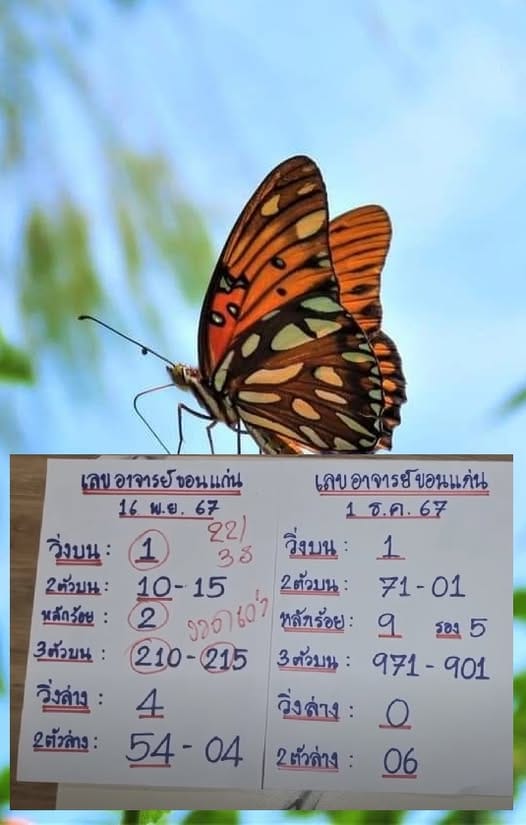 เลขอาจารย์ขอนแก่น
16 พ.ย. 67
221
38
วิ่งบน : 1
2ตัวบน : 10 - 15
หลักร้อย : 2
งวดเก่า
3ตัวบน : 210 - 215
วิ่งล่าง : 4
2ตัวล่าง : 54 - 04
เลขอาจารย์ขอนแก่น
1 ธ.ค. 67
วิ่งบน : 1
2ตัวบน : 71 - 01
หลักร้อย : 9 รอง 5
3ตัวบน : 971 - 901
วิ่งล่าง : 0
2ตัวล่าง : 06